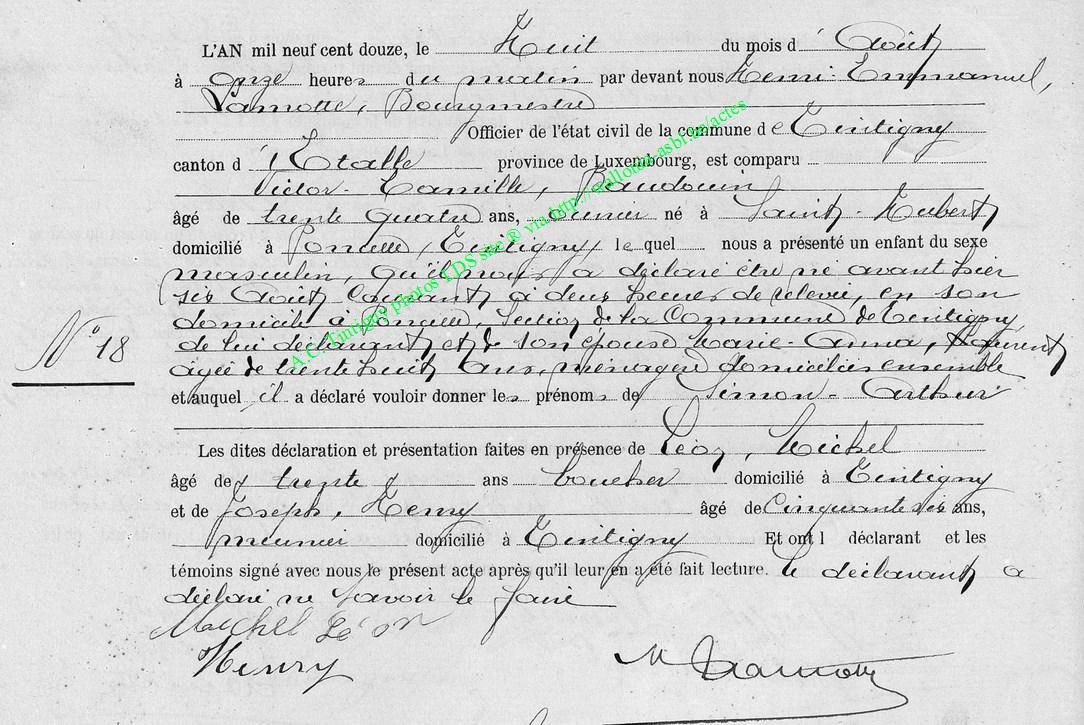 L'AN mil neuf cent douze, le Huit du mois d' Août
à onze heures du matin par devant nous Henri-Emmanuel,
Lamotte, Bourgmestre
Officier de l'état civil de la commune de Tintigny
canton d'Etalle province de Luxembourg, est comparu
Victor-Camille, Baudouin
âgé de trente quatre ans, né à Saint-Hubert
domicilié à Poncelle, Tintigny, lequel nous a présenté un enfant du sexe
masculin, qu'il nous a déclaré être né avant hier
six Août courant, à deux heures de relevée, en son
domicile à Poncelle, section de la Commune de Tintigny
N° 18
de lui déclarant et de son épouse Marie-Anna, Laurent
agée de trente huit ans, ménagère domiciliés ensemble
et auquel il a déclaré vouloir donner les prénoms de Simon-Arthur
Les dites déclaration et présentation faites en présence de Léon, Michel
âgé de trente ans boucher domicilié à Tintigny
et de Joseph, Henry âgé de Cinquante six ans,
meunier domicilié à Tintigny Et ont l déclarant et les
témoins signé avec nous le présent acte après qu'il leur en a été fait lecture. le déclarant a
déclaré ne savoir le faire
Michel Léon
Henry Lamotte
A.C. Tintigny photos TDS site ® via http://wallonia-asbl.be/actes